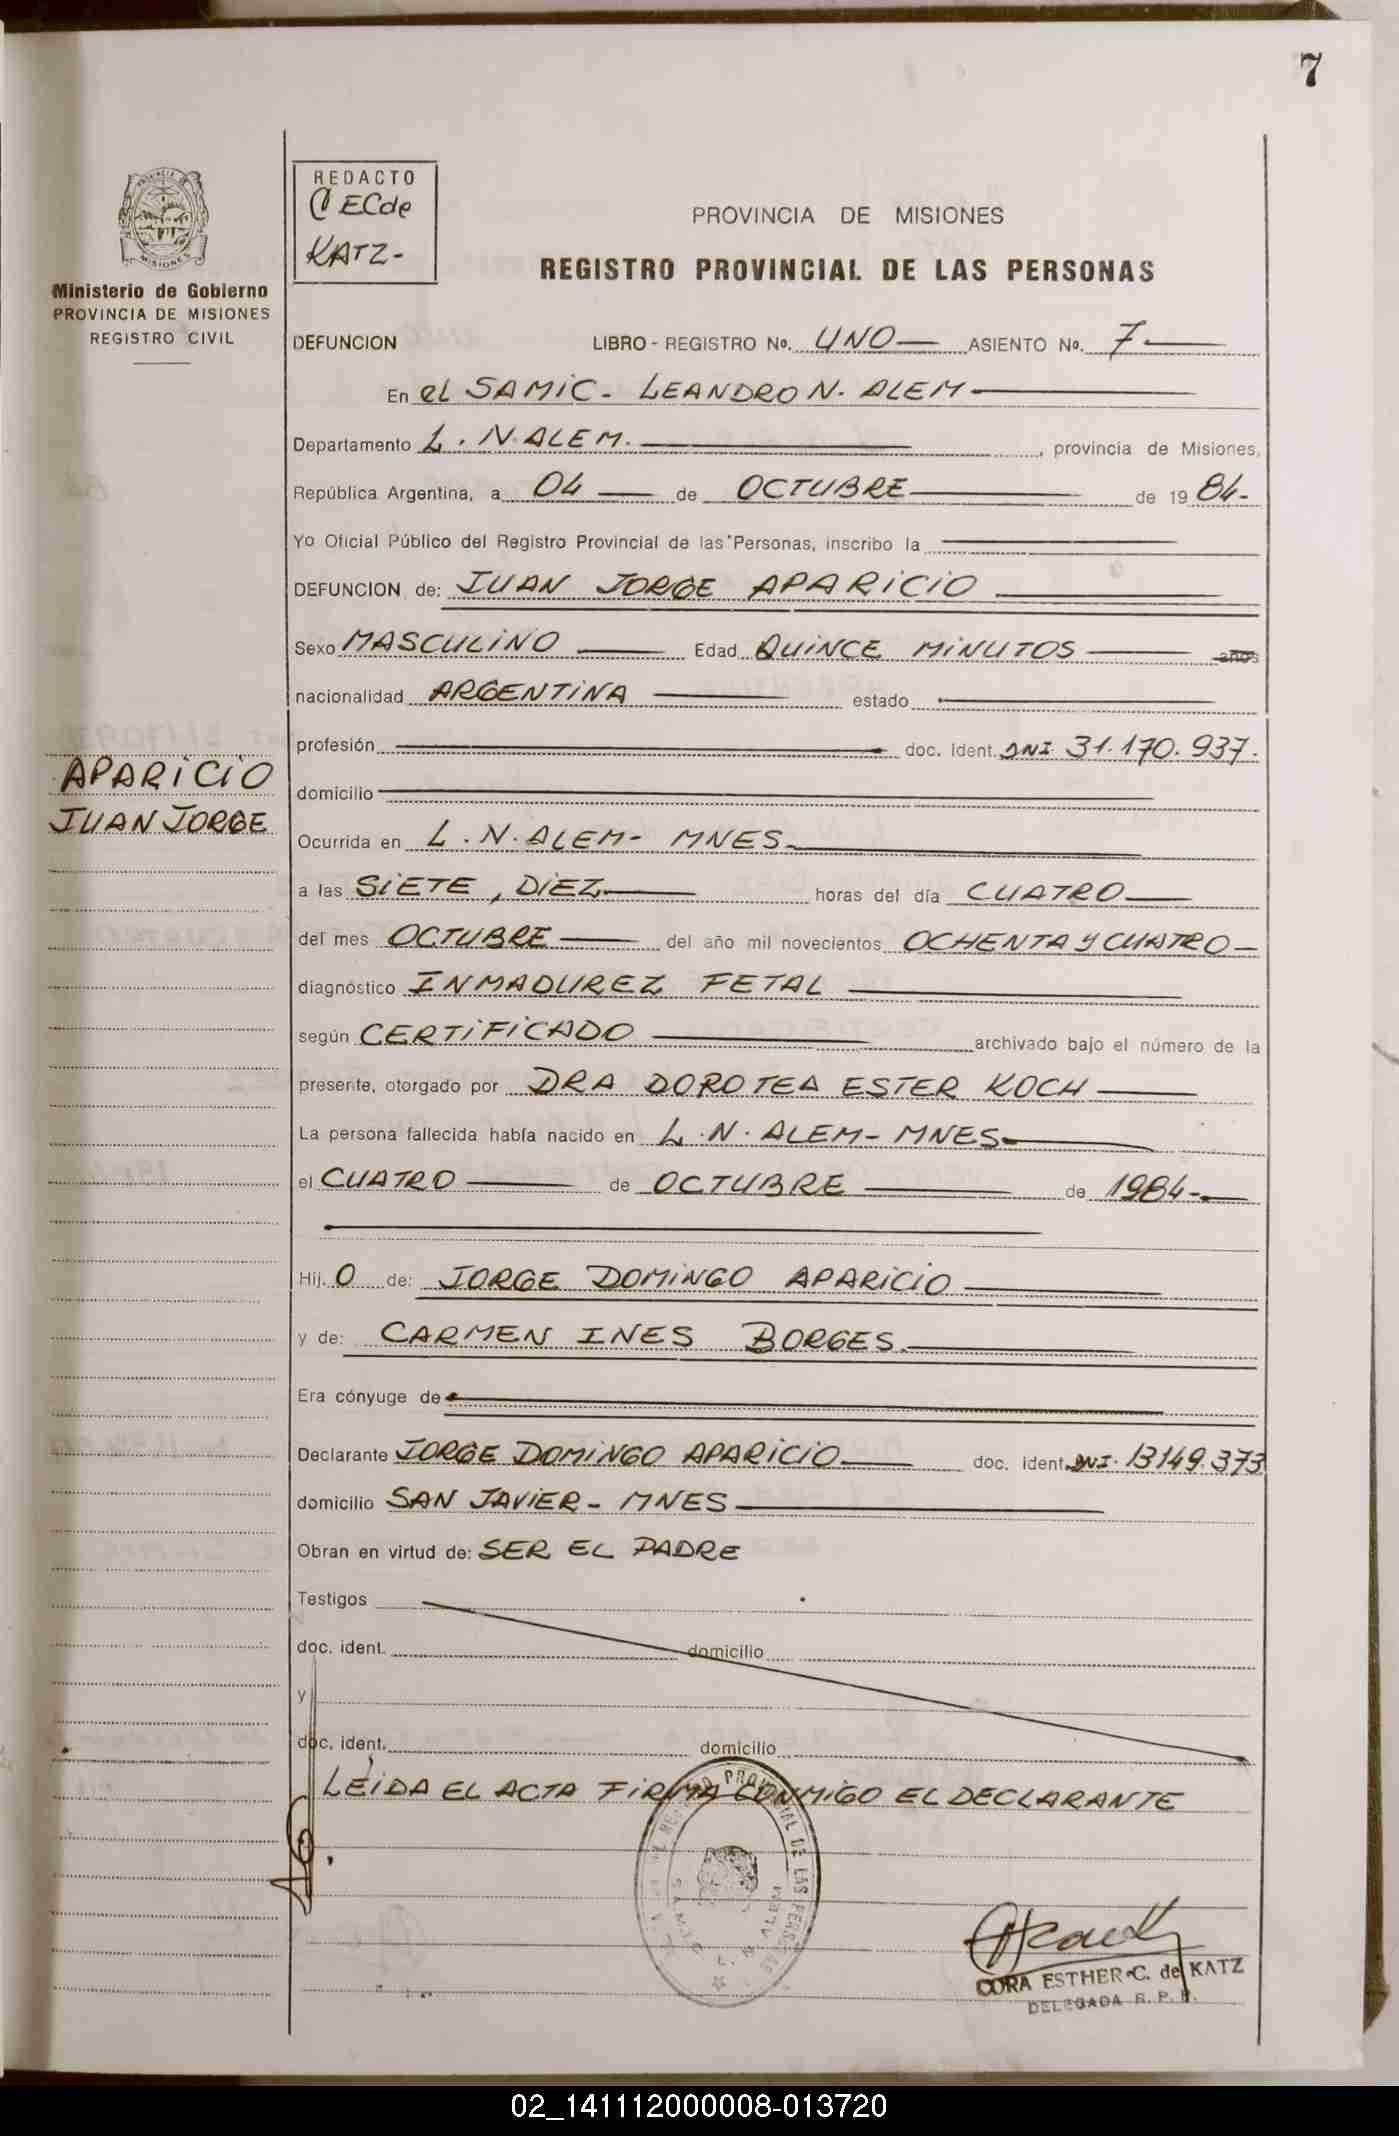 7
REDACTO
CECde
KATZ-
PROVINCIA DE MISIONES
REGISTRO PROVINCIAL DE LAS PERSONAS
Ministerio de Gobierno
PROVINCIA DE MISIONES
REGISTRO CIVIL
DEFUNCION LIBRO - REGISTRO No. UNO ASIENTO No. 7
En el SAMIC - LEANDRO N. ALEM
Departamento L. N. ALEM. , provincia de Misiones,
República Argentina, a 04 de OCTUBRE de 19 84-
Yo Oficial Público del Registro Provincial de las Personas, inscribo la
DEFUNCION de: JUAN JORGE APARICIO
Sexo MASCULINO Edad QUINCE MINUTOS años
nacionalidad ARGENTINA estado
profesión doc. ident. DNI. 31.170.937.
APARICIO
JUAN JORGE
domicilio
Ocurrida en L.N.ALEM- MNES-
a las SIETE, DIEZ horas del día CUATRO
del mes OCTUBRE del año mil novecientos OCHENTA Y CUATRO-
diagnóstico INMADUREZ FETAL
según CERTIFICADO archivado bajo el número de la
presente, otorgado por DRA DOROTEA ESTER KOCH
La persona fallecida había nacido en L.N. ALEM- MNES-
el CUATRO de OCTUBRE de 1984-
Hij. O de: JORGE DOMINGO APARICIO
y de: CARMEN INES BORGES.
Era cónyuge de
Declarante JORGE DOMINGO APARICIO doc. ident. DNI. 13149.373
domicilio SAN JAVIER - MNES
Obran en virtud de: SER EL PADRE
Testigos
doc. ident. domicilio
y
doc. ident. domicilio
LEIDA EL ACTA FIRMA CONMIGO EL DECLARANTE
CORA ESTHER C. de KATZ
DELEGADA R. P. P.
02_141112000008-013720